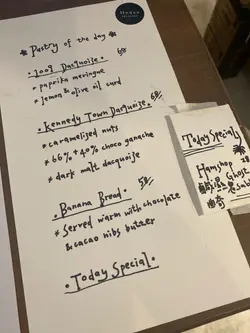 * Pastry of the day *
• 100% Dacquoise •
68
* paprika meringue
* lemon & olive oil curd
• Kennedy Town Dacquoise •
68
* caramelized nuts
* 66% + 40% choco ganache
* dark malt dacquoise
• Banana Bread •
58
* Served warm with chocolate
& cacao nibs butter
• Today Special •
Today Special
Hamshop
Ghost